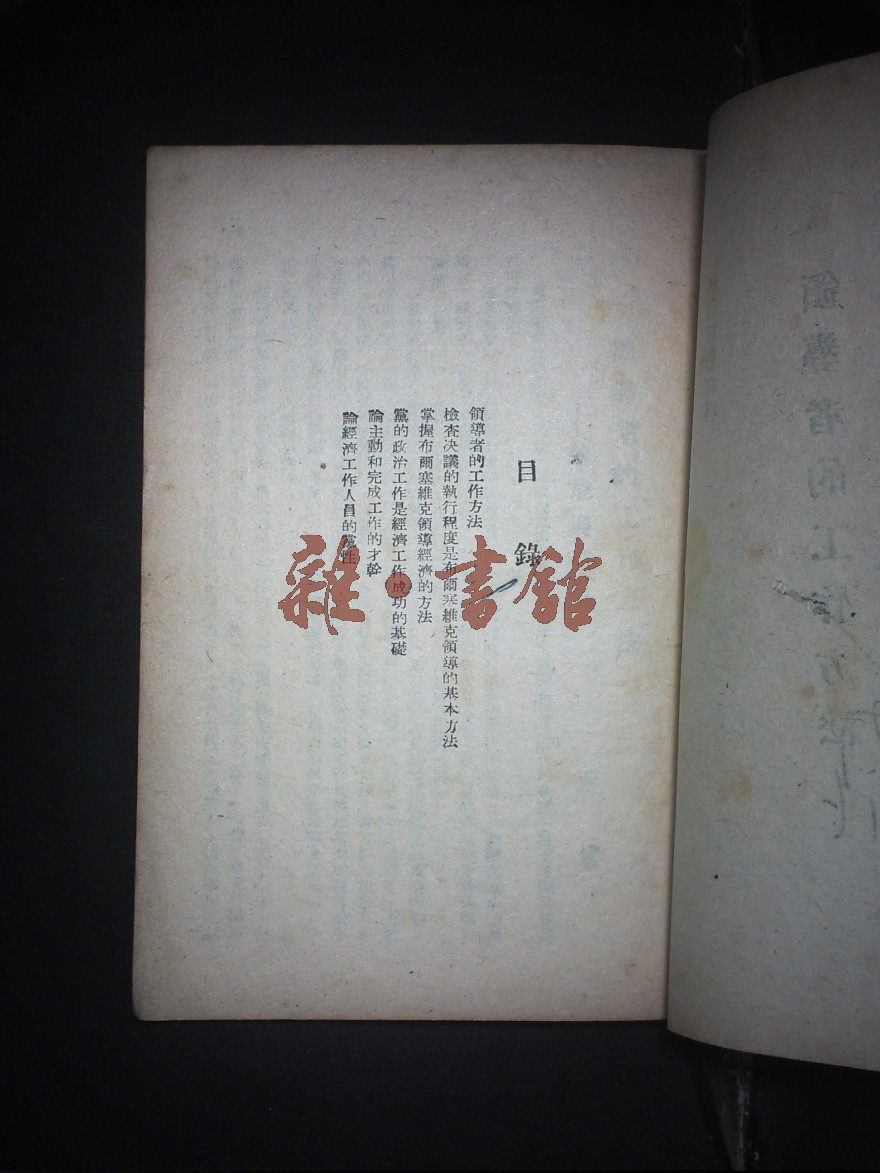 目錄
領導者的工作方法
檢查決議的執行程度是布爾塞維克領導的基本方法
掌握布爾塞維克領導經濟的方法
黨的政治工作是經濟工作成功的基礎
論主動和完成工作的才幹
論經濟工作人員的黨性
雜·書館
領導者的工作方